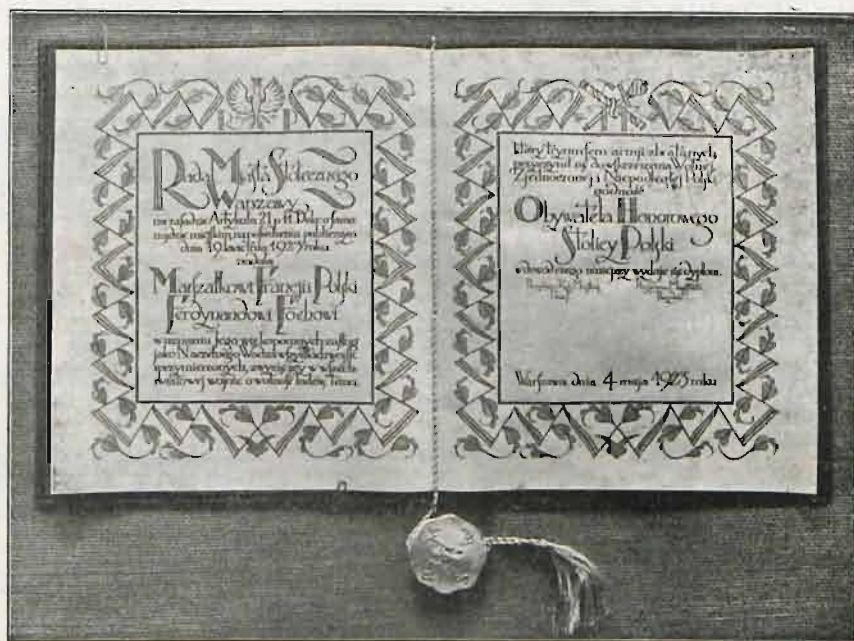 Rada Miasta Stołecznego
Warszawy
na zasadzie Artykułu 21 p. 11 Dekr. o samo
rządzie miejskim, na posiedzeniu publicznym
dnia 19 kwietnia 1923 roku
nadała
Marszałkowi Francji i Polski
Ferdynandowi Fochowi
w uznaniu Jego zasług
jako Naczelnego Wodza wszystkich wojsk
sprzymierzonych, zwycięzcy w
światowej wojnie o wolność
który tryumfem armji
przyczynił się do wskrzeszenia Wolnej
Zjednoczonej i Niepodległej Polski
godność
Obywatela Honorowego
Stolicy Polski
w dowód czego niniejszy wydaje się dyplom.
Warszawa dnia 4 maja 1923 roku